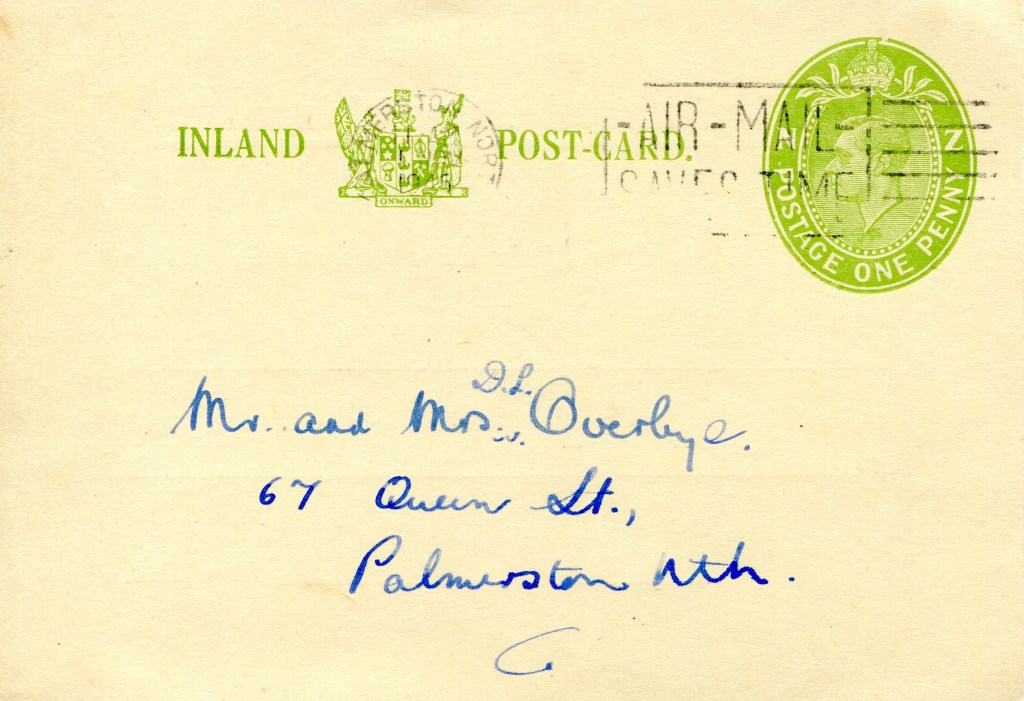 INLAND POST-CARD.
ONWARD
AIR-MAIL
SAVES TIME
N Z
POSTAGE ONE PENNY
D.L.
Mr. and Mrs. Overbye.
67 Queen St.,
Palmerston Nth.